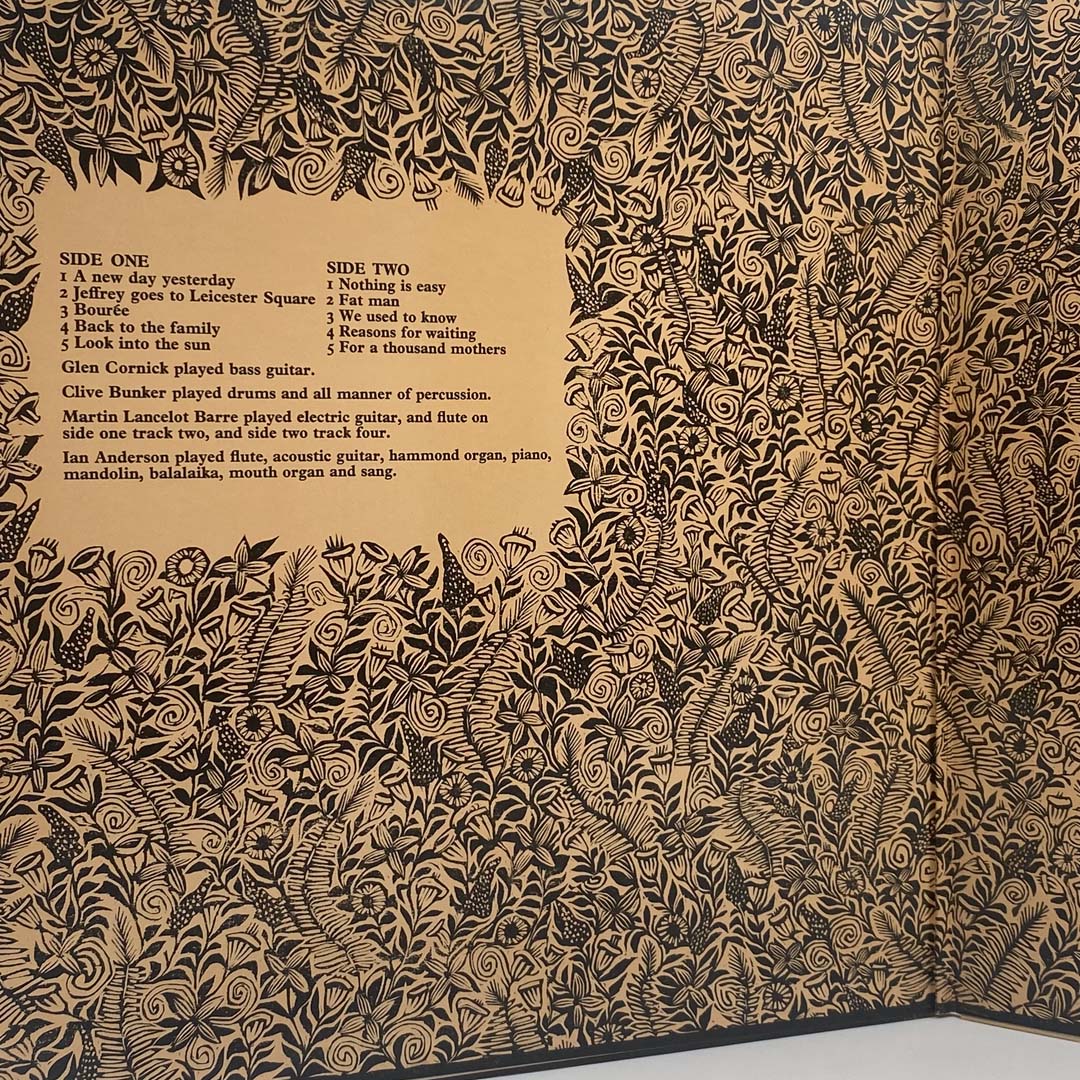 SIDE ONE
1 A new day yesterday
2 Jeffrey goes to Leicester Square
3 Bourée
4 Back to the family
5 Look into the sun
SIDE TWO
1 Nothing is easy
2 Fat man
3 We used to know
4 Reasons for waiting
5 For a thousand mothers
Glen Cornick played bass guitar.
Clive Bunker played drums and all manner of percussion.
Martin Lancelot Barre played electric guitar, and flute on
side one track two, and side two track four.
Ian Anderson played flute, acoustic guitar, hammond organ, piano,
mandolin, balalaika, mouth organ and sang.